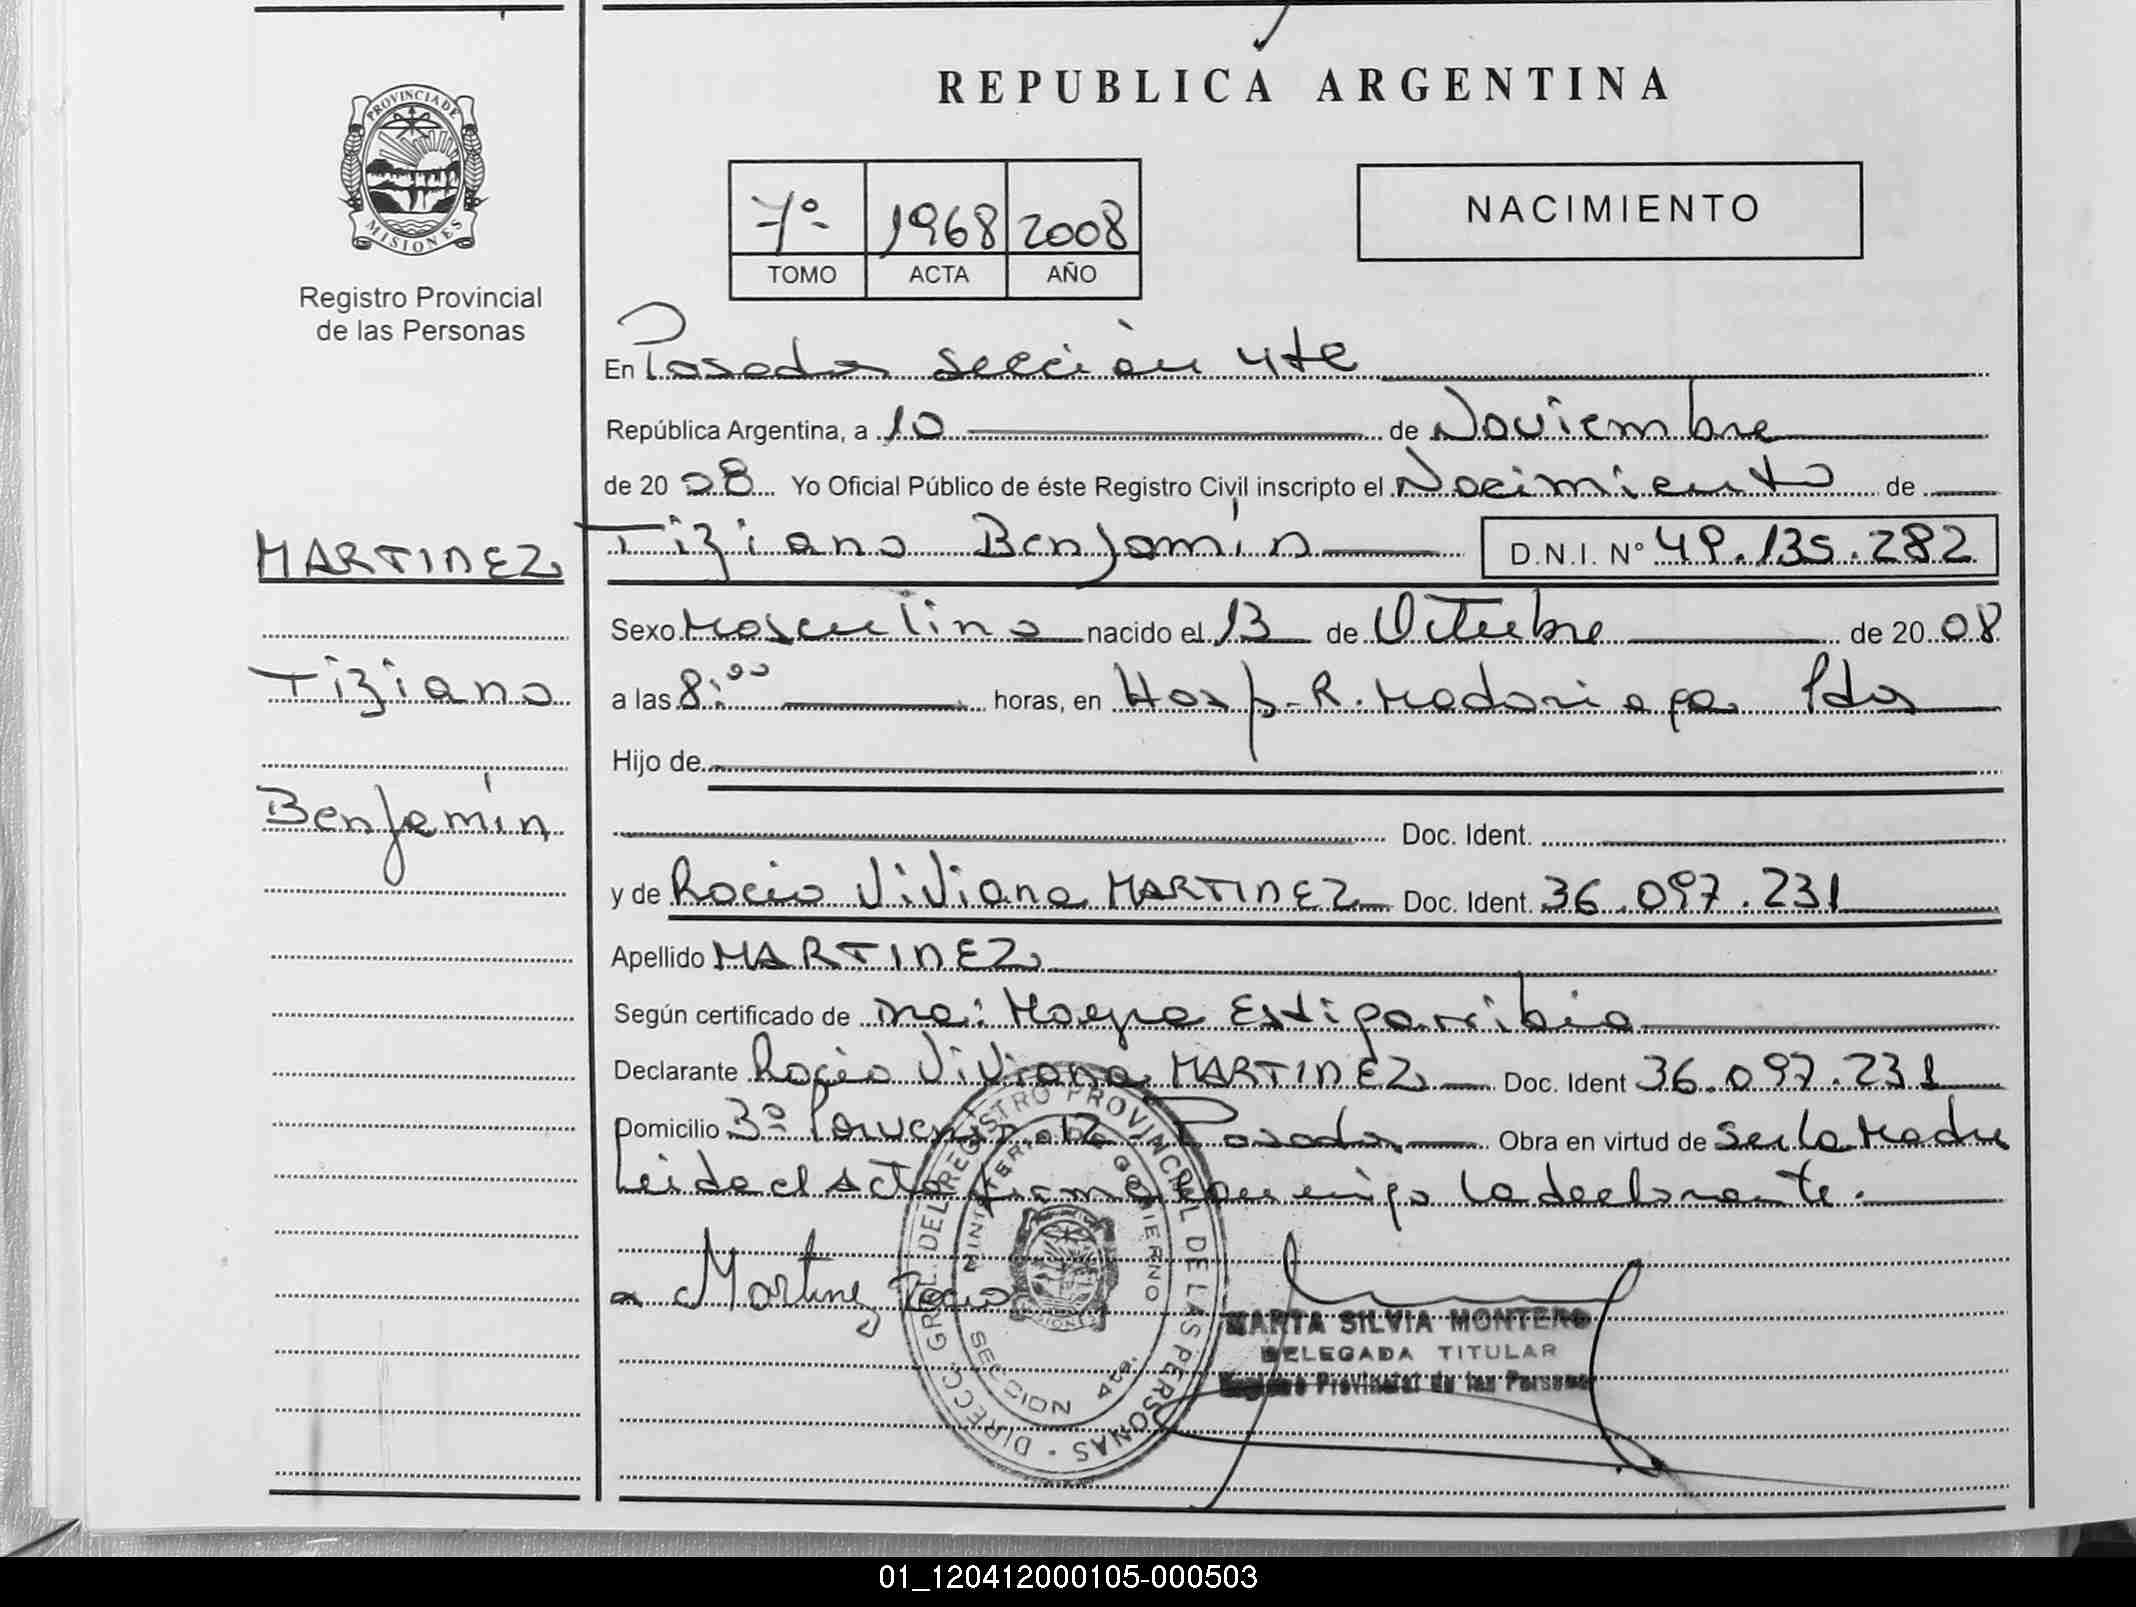 REPUBLICA ARGENTINA
PROVINCIA DE
MISIONES
Registro Provincial
de las Personas
7º 1968 2008
TOMO ACTA AÑO
NACIMIENTO
En Posadas sección 4te
República Argentina, a 10 de Noviembre
de 20 08 Yo Oficial Público de éste Registro Civil inscripto el Nacimiento de
MARTINEZ
Tiziano Benjamín D.N.I. Nº 49.135.282
Sexo Masculino nacido el 13 de Octubre de 20 08
Tiziano
a las 8:00 horas, en Hosp. R. Madariaga Pdas
Hijo de
Benjamín
Doc. Ident.
y de Rocio Viviana MARTINEZ Doc. Ident. 36.097.231
Apellido MARTINEZ
Según certificado de Dra: Estigarribia
Declarante Rocio Viviana MARTINEZ Doc. Ident 36.097.231
Domicilio 3º Posadas Obra en virtud de ser la Madre
Leida el Acta firma por la declarante.
Martinez Rocio
DIRECC. GRAL. DEL REGISTRO PROVINCIAL DE LAS PERSONAS
MINISTERIO DE GOBIERNO
SECCION 4ta.
MARTA SILVIA MONTERO
DELEGADA TITULAR
Registro Provincial de las Personas
01_120412000105-000503